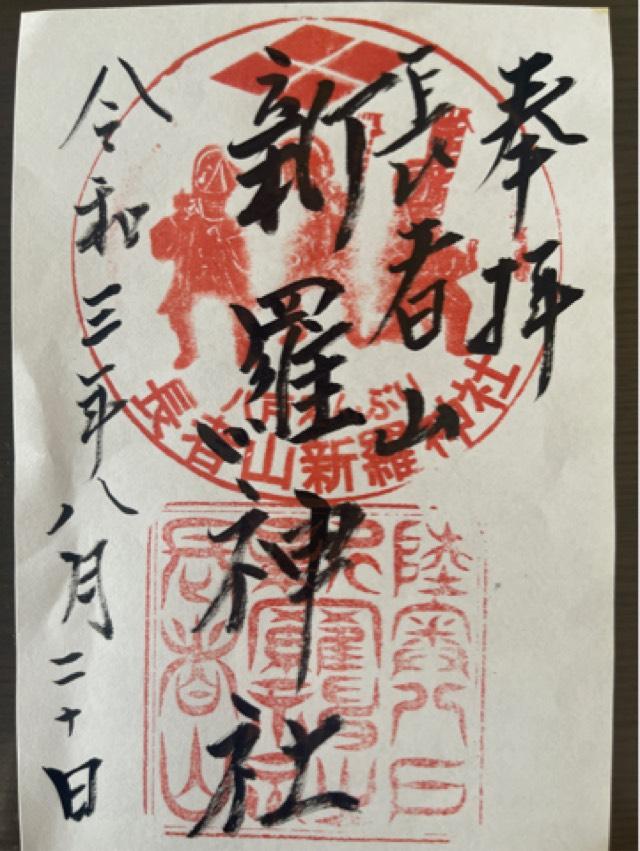 奉拝
長者山
新羅神社
令和三年八月二十日
八戸えんぶり
長者山新羅神社
陸奥八戸
長者山